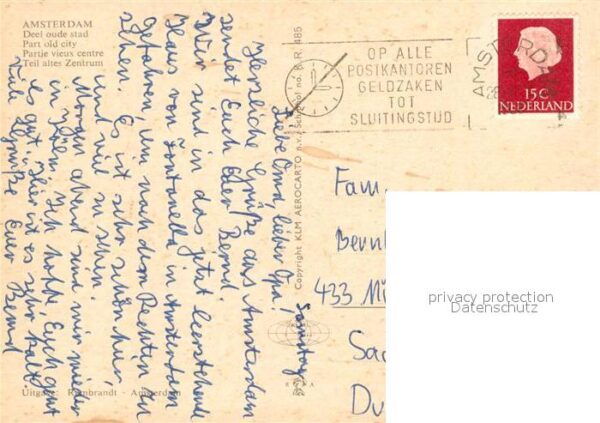 AMSTERDAM
Deel oude stad
Part old city
Partie vieux centre
Teil altes Zentrum
OP ALLE
POSTKANTOREN
GELDZAKEN
TOT
SLUITINGSTIJD
AMSTERDAM
15 C
NEDERLAND
Samstag
Liebe Oma, lieber Opa!
Herzliche Grüße aus Amsterdam
sendet Euch Euer Bernd.
Wir sind in das jetzt leerstehende
Haus von Fontanella in Amsterdam
gefahren um nach dem Rechten zu
sehen. Es ist sehr schön hier
und viel zu sehen.
Morgen abend sind wir wieder
in Köln. Ich hoffe, Euch geht
es gut. Hier ist es sehr kalt!
Viele Grüße Euer Bernd
Copyright KLM AEROCARTO N.V. / Schiphol no. R. 485
Fam.
Bernh
433 Mü
Sa
Du
Uitgave: Rembrandt - Amsterdam
privacy protection
Datenschutz